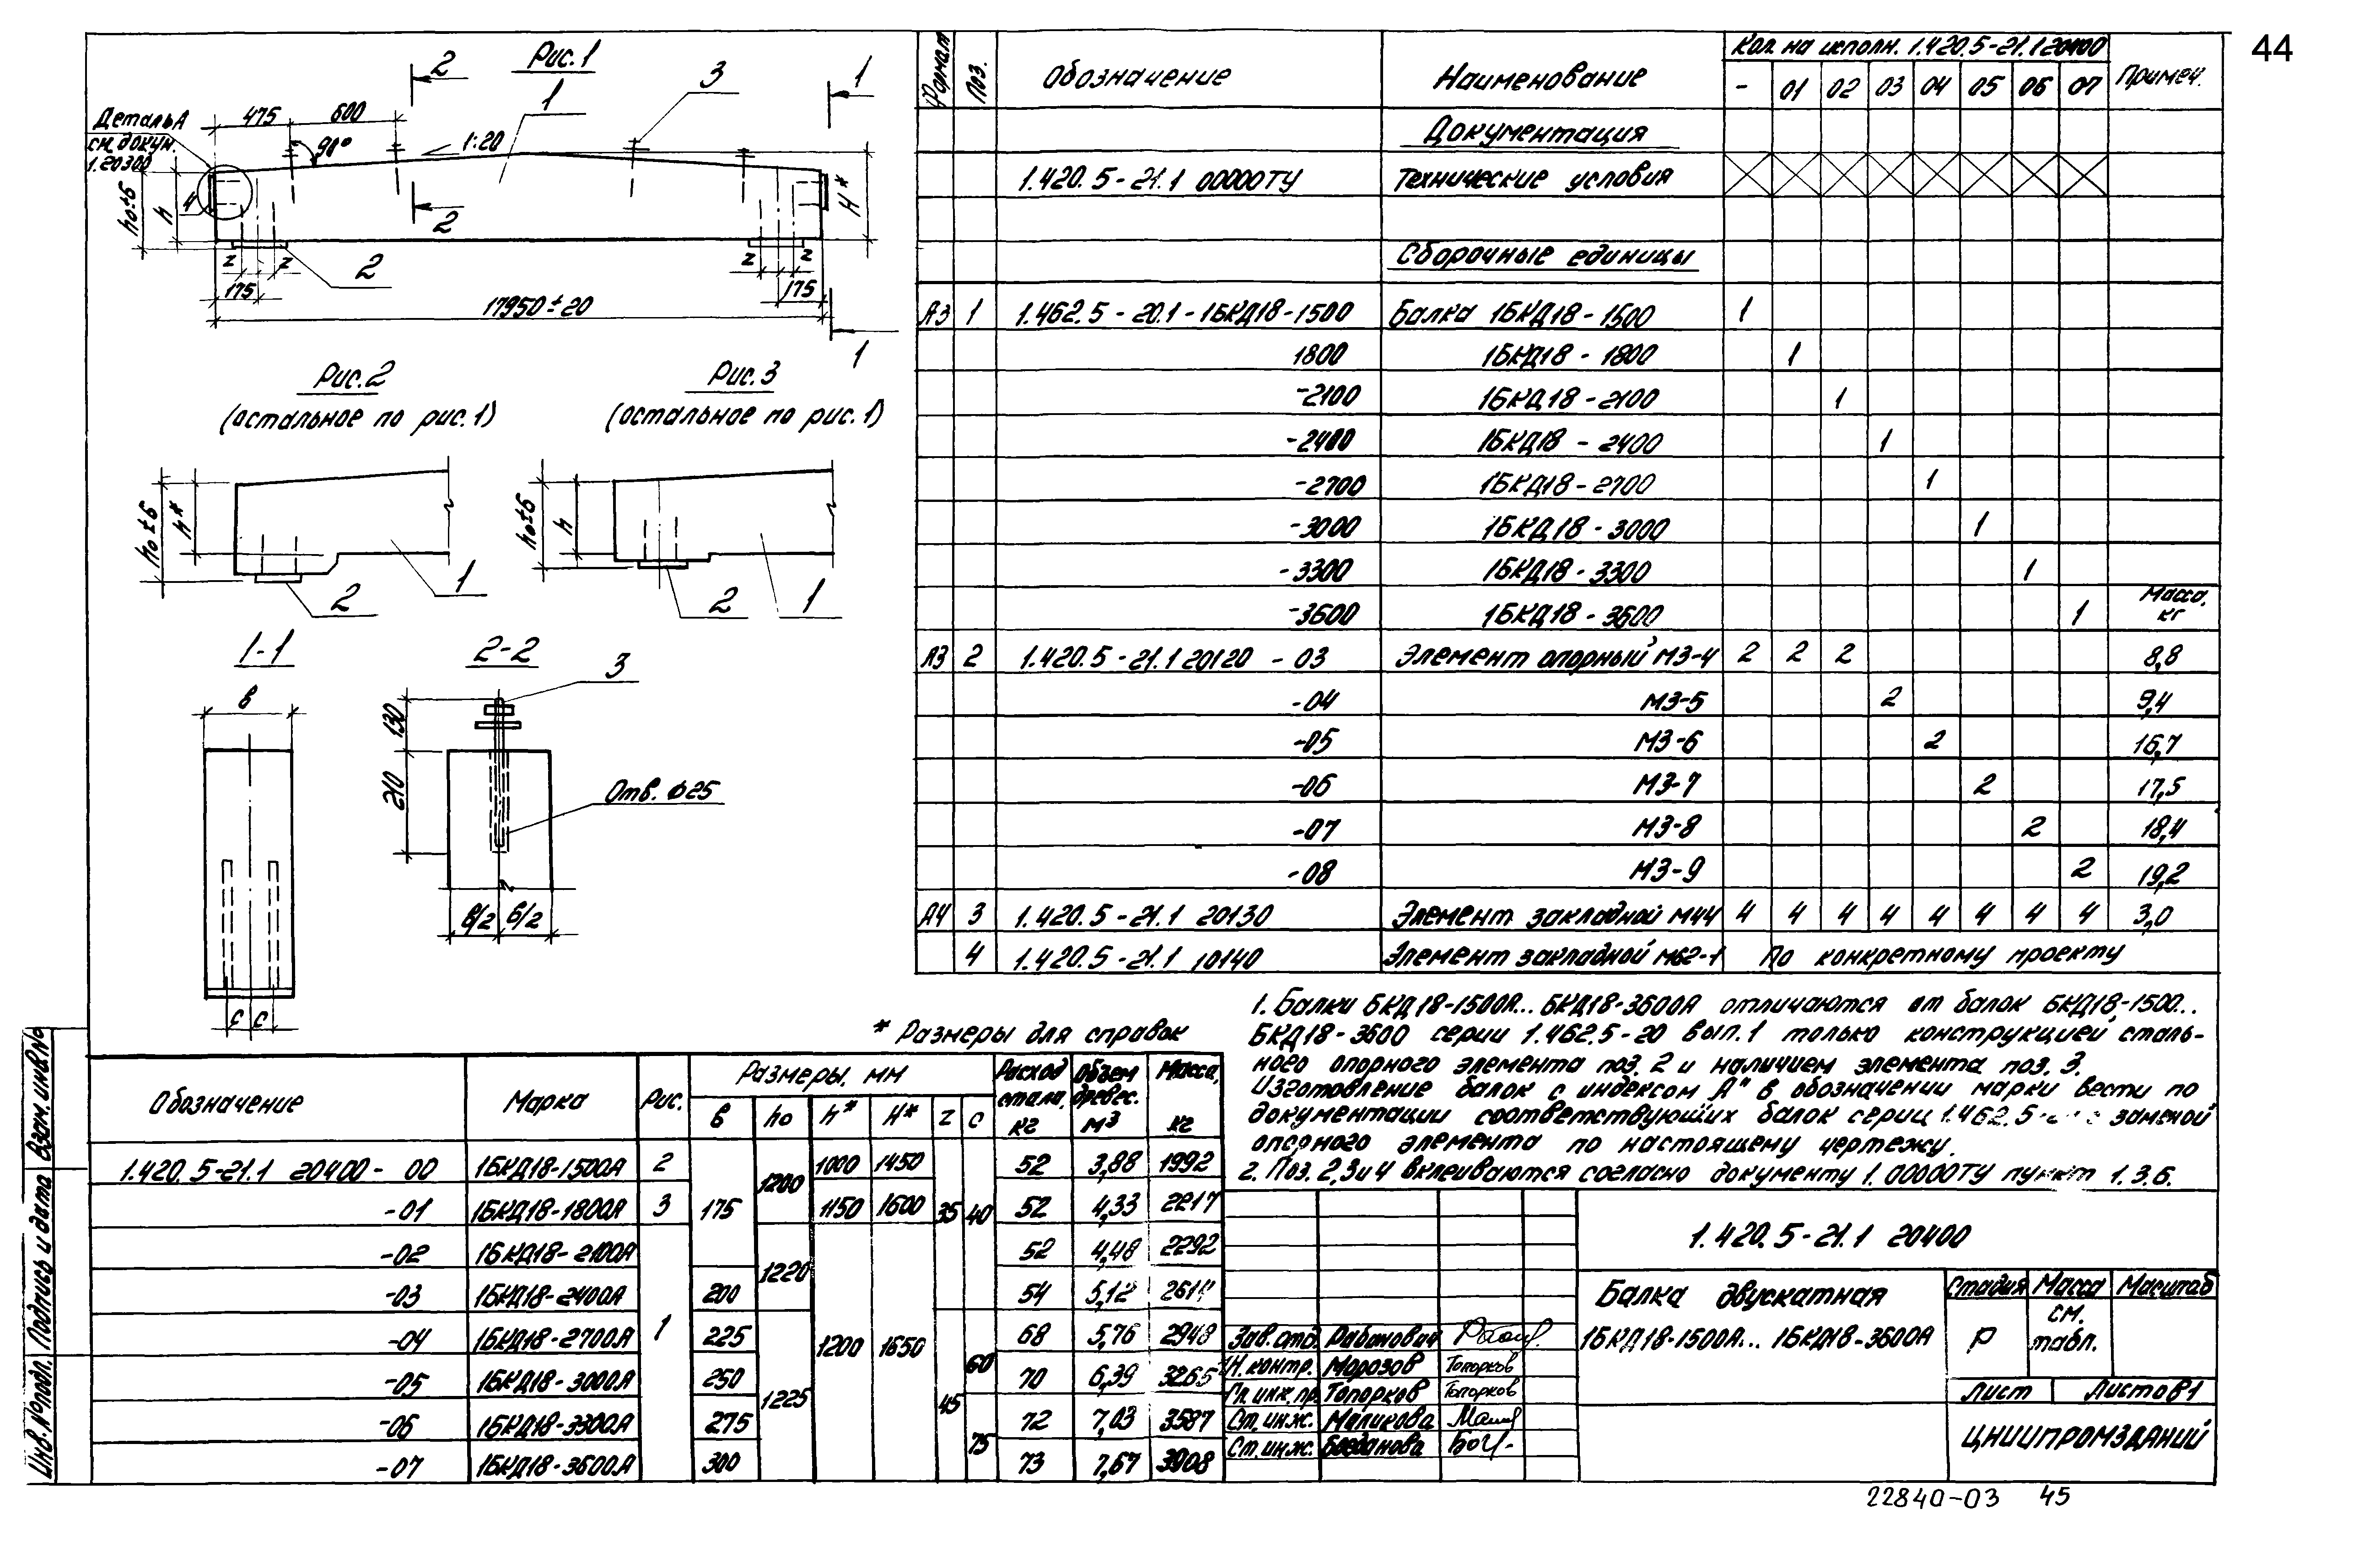 44
Рис. 1
2
3
1
1
Деталь А
см. докум.
1.20300
475
600
90°
1:20
h₀±6
h
4
H*
2
z
z
2
z
z
175
175
17950±20
1
Рис. 2
(остальное по рис. 1)
h₀±6
h*
2
1
Рис. 3
(остальное по рис. 1)
h₀±6
h
2
1
1-1
в
с
с
2-2
3
130
210
Отв. ф25
в/2
в/2
* Размеры для справок
Формат
Поз.
Обозначение
Наименование
Кол. на исполн. 1.420.5-21.1 20400
Примеч.
- 01 02 03 04 05 06 07
Документация
1.420.5-21.1 00000ТУ Технические условия
Сборочные единицы
А3 1 1.462.5-20.1-1БКД18-1500 Балка 1БКД18-1500 1
1800 1БКД18-1800 1
-2100 1БКД18-2100 1
-2400 1БКД18-2400 1
-2700 1БКД18-2700 1
-3000 1БКД18-3000 1
-3300 1БКД18-3300 1
-3600 1БКД18-3600 1 Масса, кг
А3 2 1.420.5-21.1 20120 -03 Элемент опорный М3-4 2 2 2 8,8
-04 М3-5 2 9,4
-05 М3-6 2 16,7
-06 М3-7 2 17,5
-07 М3-8 2 18,4
-08 М3-9 2 19,2
А4 3 1.420.5-21.1 20130 Элемент закладной М44 4 4 4 4 4 4 4 4 3,0
4 1.420.5-21.1 10140 Элемент закладной М62-1 По конкретному проекту
1. Балки БКД18-1500А... БКД18-3600А отличаются от балок БКД18-1500...
БКД18-3600 серии 1.462.5-20 вып. 1 только конструкцией сталь-
ного опорного элемента поз. 2 и наличием элемента поз. 3.
Изготовление балок с индексом А" в обозначении марки вести по
документации соответствующих балок серии 1.462.5- заменой
опорного элемента по настоящему чертежу.
2. Поз. 2,3 и 4 вклеиваются согласно документу 1.00000ТУ пункт 1.3.6.
Обозначение
Марка
Рис.
Размеры, мм
Расход стали, кг
Объем древес. м³
Масса, кг
в h₀ h* H* z c
1.420.5-21.1 20400- 00 1БКД18-1500А 2 175 1200 1000 1450 35 40 52 3,88 1992
-01 1БКД18-1800А 3 1150 1600 52 4,33 2217
-02 1БКД18-2100А 1 1220 1200 1650 52 4,48 2292
-03 1БКД18-2400А 200 54 5,12
-04 1БКД18-2700А 225 1225 45 60 68 5,76 2948
-05 1БКД18-3000А 250 70 6,39 3265
-06 1БКД18-3300А 275 75 72 7,03 3587
-07 1БКД18-3600А 300 73 7,67 3908
1.420.5-21.1 20400
Балка двускатная
1БКД18-1500А... 1БКД18-3600А
Стадия Масса Масштаб
Р см. табл.
Лист Листов 1
ЦНИИПРОМЗДАНИЙ
Зав. отд. Рабинович
Н. контр. Морозов Топорков
Гл. инж. пр. Топорков Топорков
Ст. инж. Маликова
Ст. инж. Богданова
Инв. № подл. Подпись и дата Взам. инв. №
22840-03 45